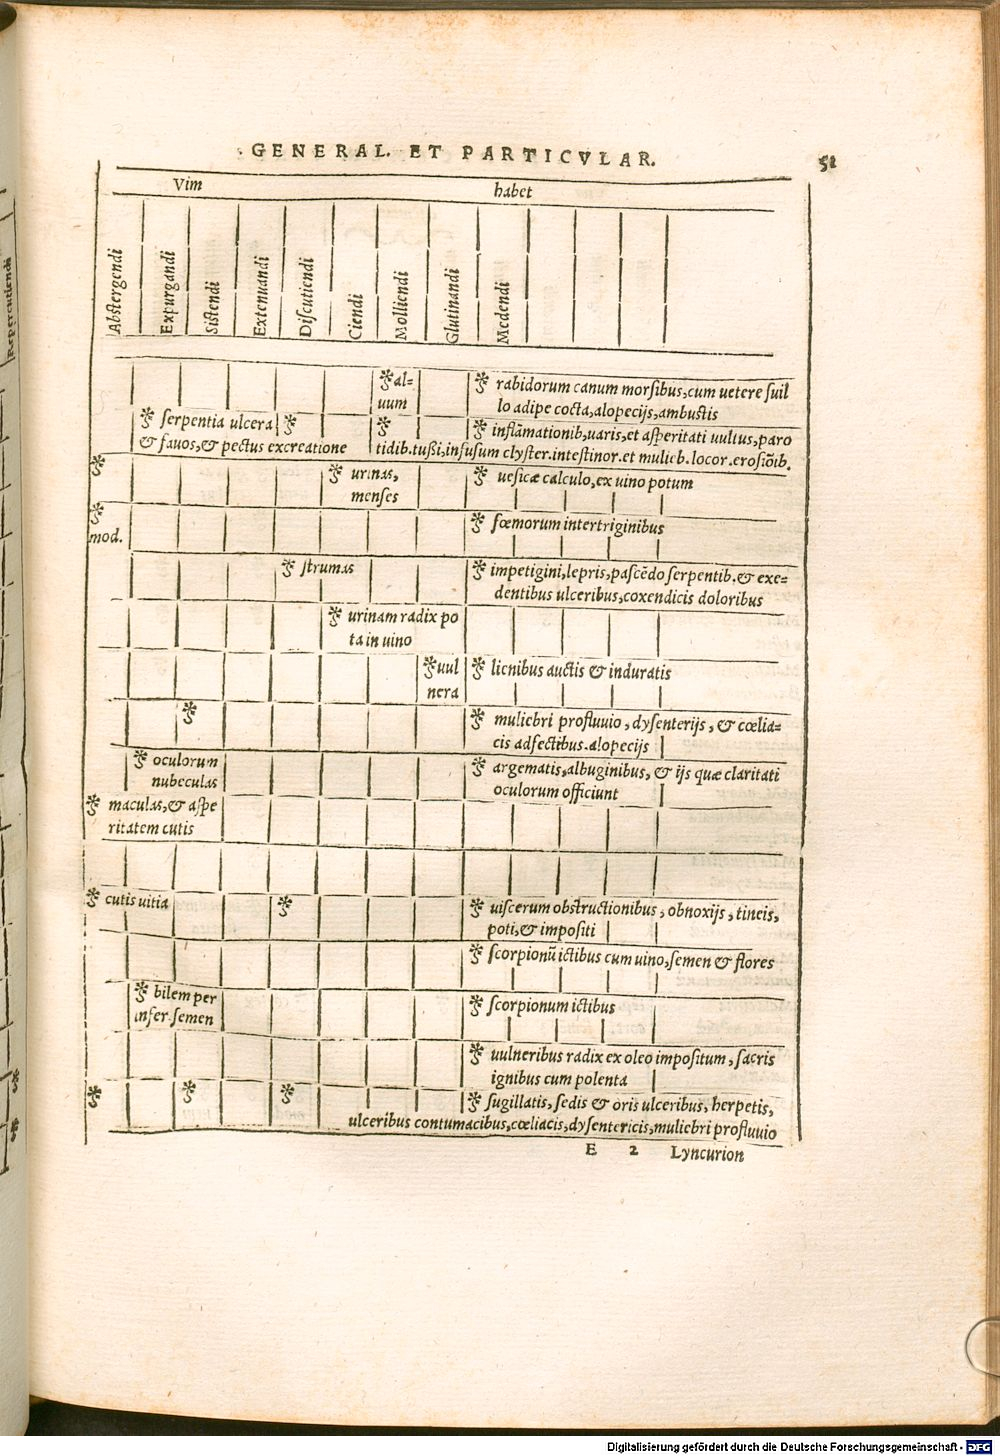 GENERAL. ET PARTICVLAR.
51
Vim habet
Abstergendi
Expurgandi
Sistendi
Extenuandi
Discutiendi
Ciendi
Molliendi
Glutinandi
Medendi
Repercutiendi
al=
uum
rabidorum canum morsibus, cum uetere suil
lo adipe cocta, alopecijs, ambustis
serpentia ulcera
& fauos, & pectus excreatione
inflāmationib, uaris, et asperitati uultus, paro
tidib. tußi, infusum clyster. intestinor. et mulieb. locor. erosiōib.
urinas,
menses
uesicæ calculo, ex uino potum
mod.
fœmorum intertriginibus
strumas
impetigini, lepris, pascēdo serpentib. & exe=
dentibus ulceribus, coxendicis doloribus
urinam radix po
ta in uino
uul
nera
lienibus auctis & induratis
muliebri profluuio, dysenterijs, & cœlia=
cis adfectibus. alopecijs
oculorum
nubeculas
argematis, albuginibus, & ijs quæ claritati
oculorum officiunt
maculas, & aspe
ritatem cutis
cutis uitia
uiscerum obstructionibus, obnoxijs, tineis,
poti, & impositi
scorpionū ictibus cum uino, semen & flores
bilem per
infer. semen
scorpionum ictibus
uulneribus radix ex oleo impositum, sacris
ignibus cum polenta
sugillatis, sedis & oris ulceribus, herpetis,
ulceribus contumacibus, cœliacis, dysentericis, muliebri profluuio
E 2 Lyncurion
Digitalisierung gefördert durch die Deutsche Forschungsgemeinschaft - DFG